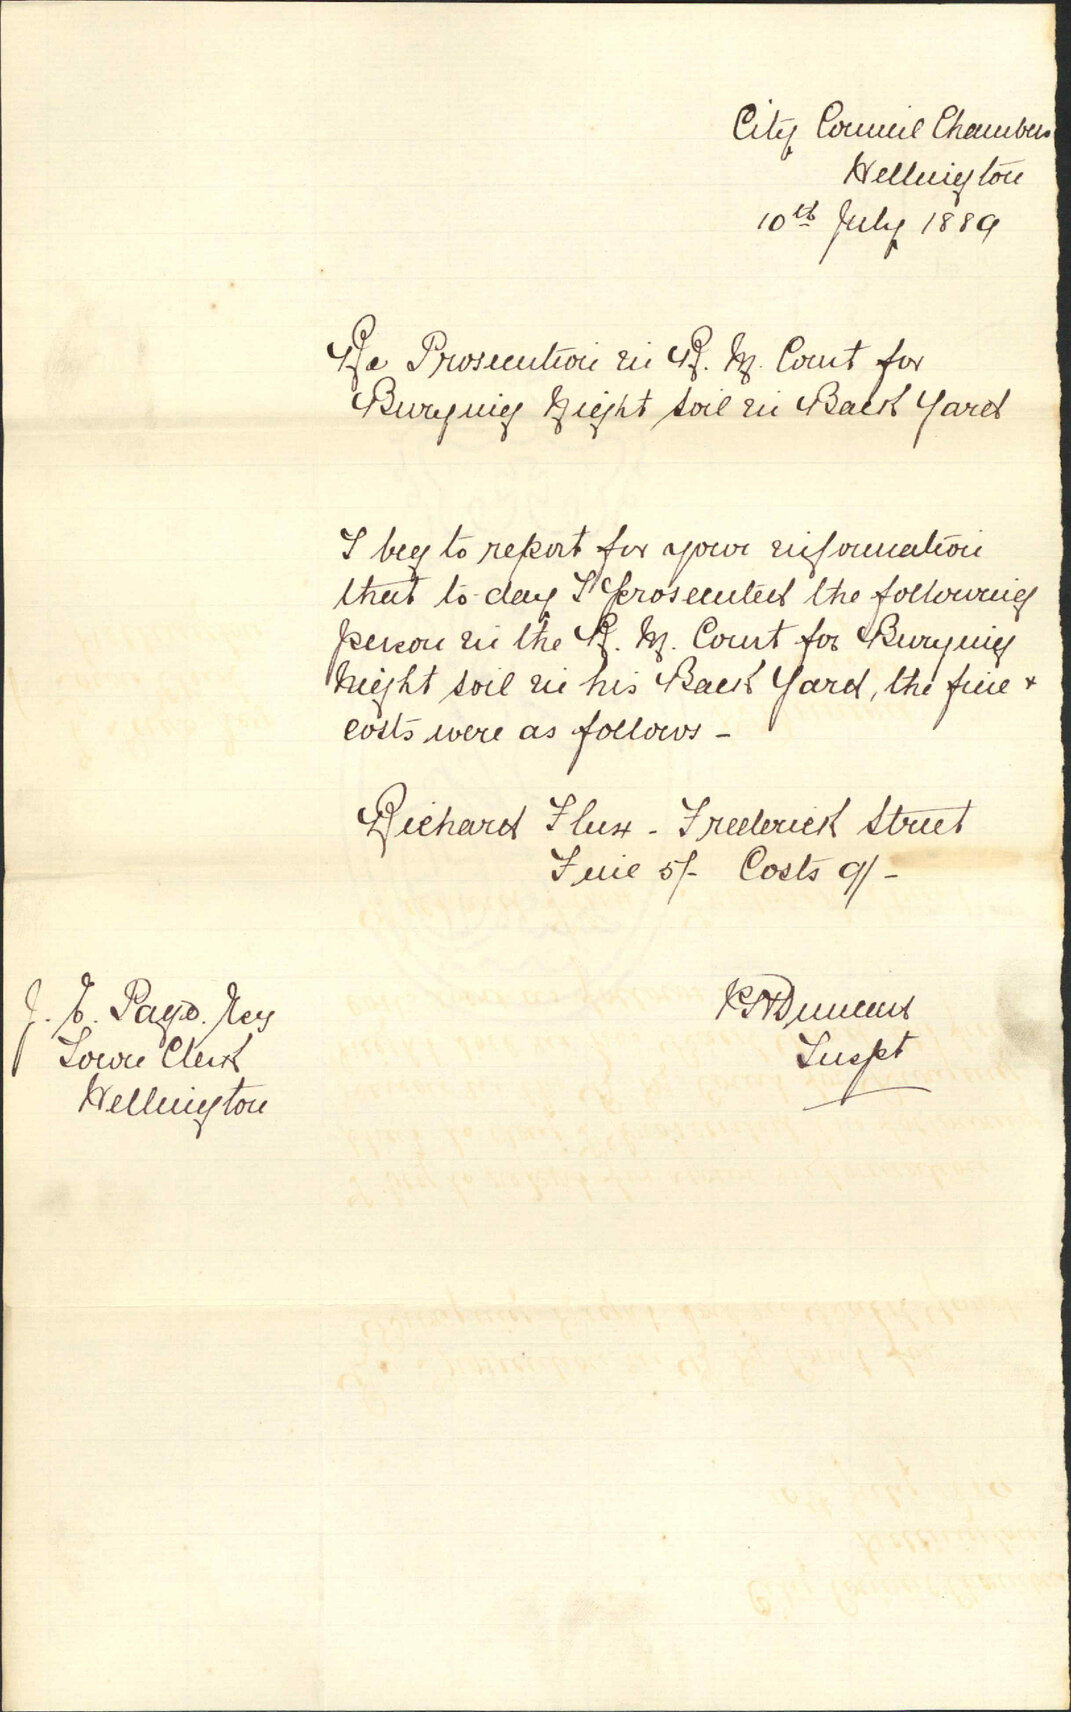 City Council Chambers
Wellington
10th July 1889
Re Prosecution in R. M. Court for
Burying Night soil in Back Yard
I beg to report for your information
that to-day I prosecuted the following
person in the R. M. Court for Burying
Night soil in his Back Yard, the fine &
costs were as follows -
Richard Flux - Frederick Street
Fine 5/- Costs 9/-
J. E. Page. Esq
Town Clerk
Wellington
Duncan
Inspt